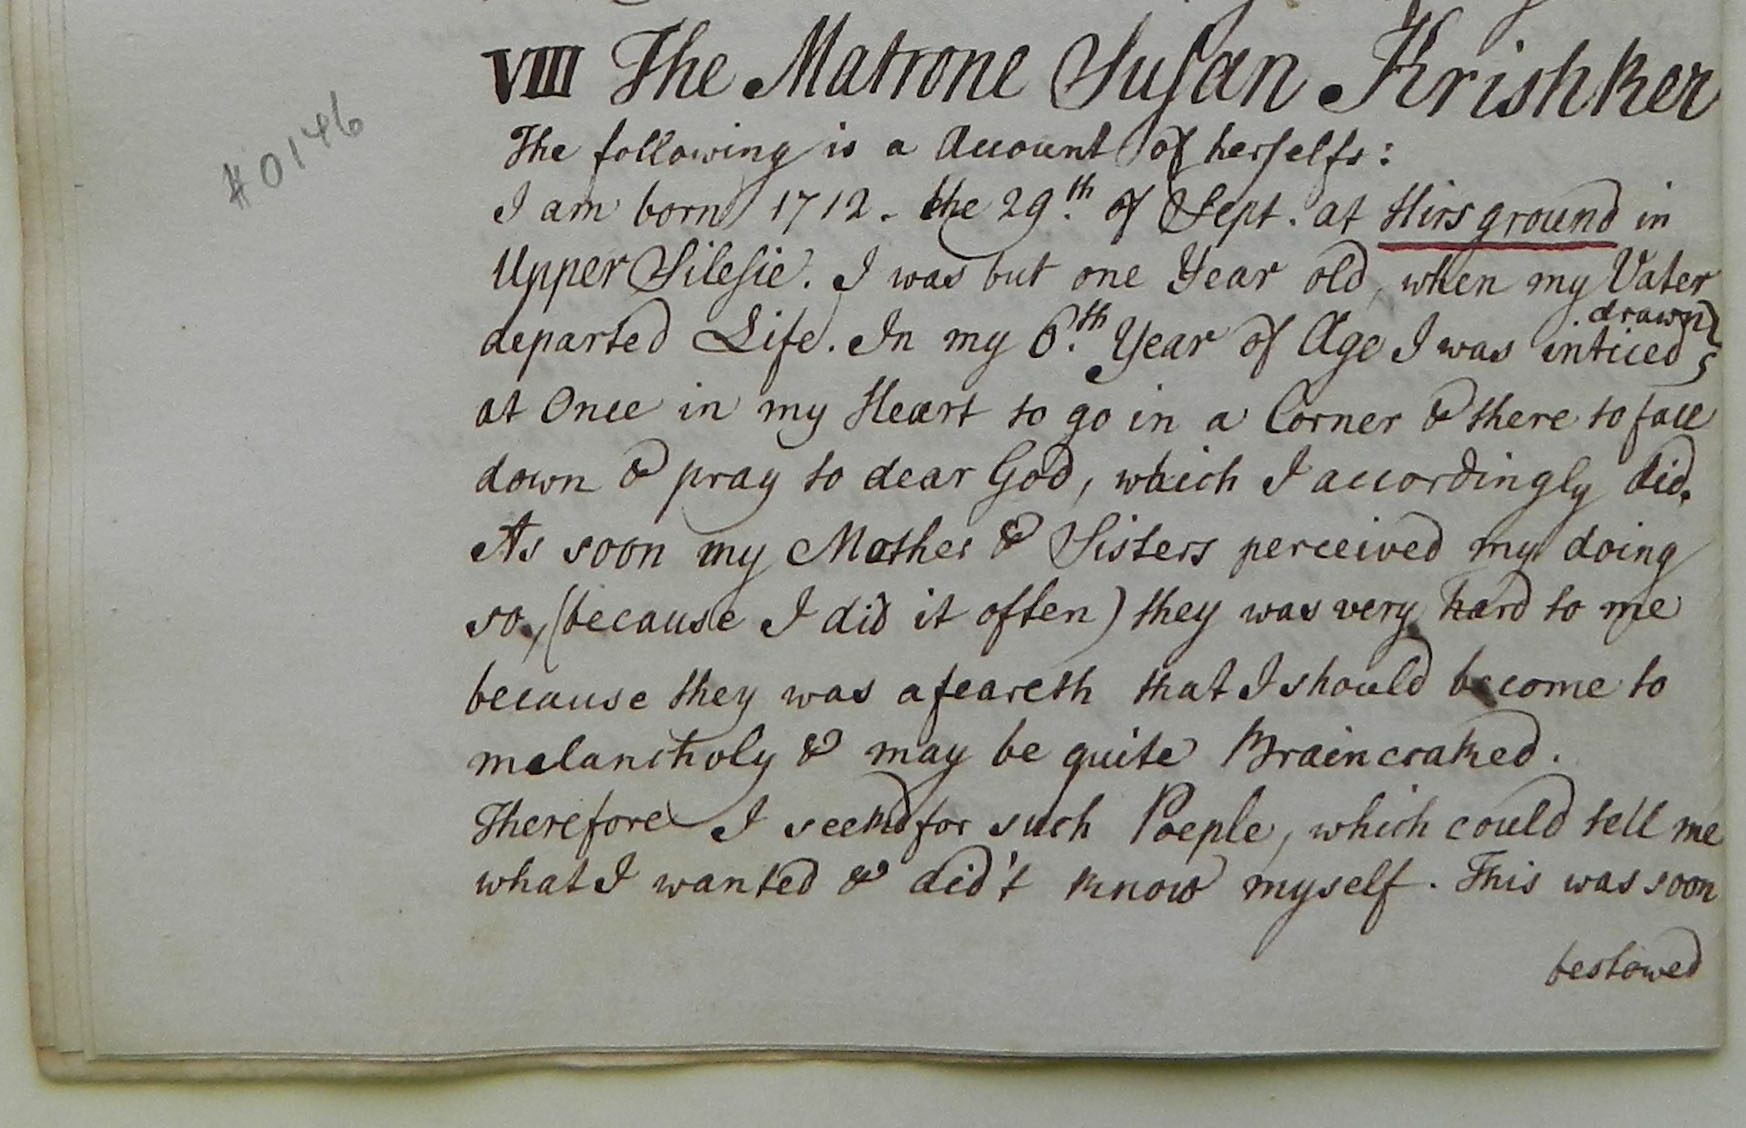 VIII The Matrone Susan Krishker
#0146
The following is a Account of herselfs:
I am born 1712. the 29.th of Sept. at Hirsground in
Upper Silesie. I was but one Year old, when my Vater
drawn
departed Life. In my 6.th Year of Age I was inticed
at Once in my Heart to go in a Corner & there to fall
down & pray to dear God, which I accordingly did.
As soon my Mother & Sisters perceived my doing
so, (because I did it often) they was very hard to me
because they was afeareth that I should become to
melancholy & may be quite Braincraked.
Therefore I seekd for such Poeple, which could tell me
what I wanted & did't know myself. This was soon
bestowed